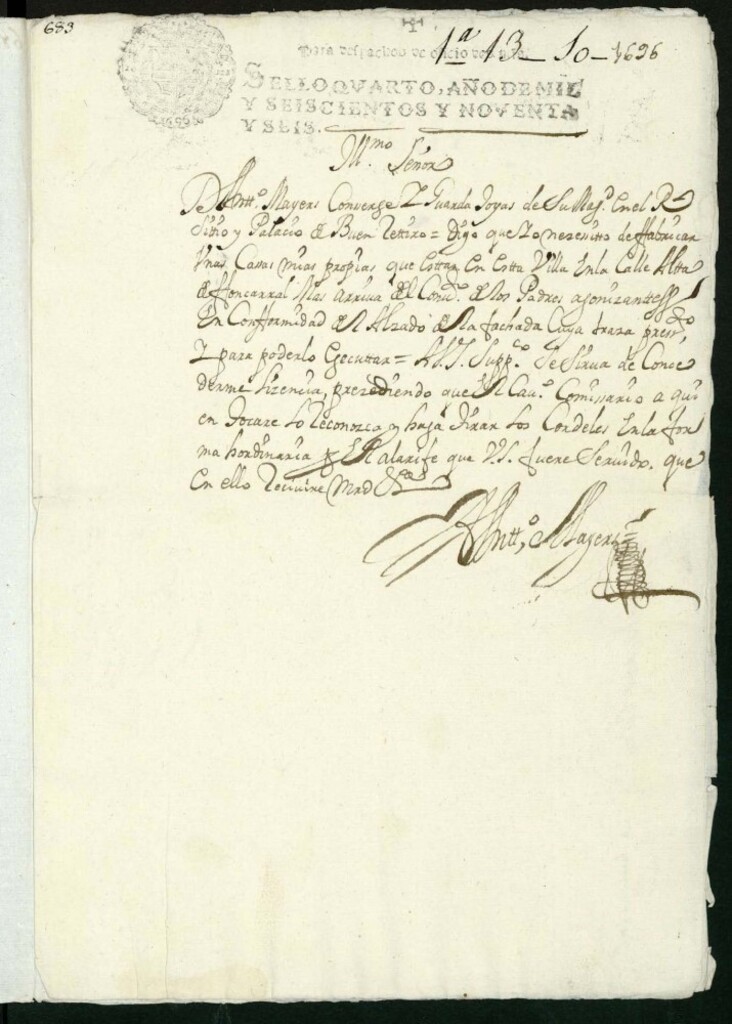 683
1ª 13 - 10 - 1696
Para despachos de oficio dos mrs.
SELLO QVARTO, AÑO DE MIL
Y SEISCIENTOS Y NOVENTA
Y SEIS.
Señor
Antt.º Mayers Conserge Y Guarda Joyas de Su Mag.d En el R.l
Sittio y Palacio de Buen Rettiro = digo que Yo nezesitto de fabricar
Unas Cassas mias propias que Esttan En Estta Villa En la Calle Altta
de foncarral Mas arriva del Conv.to de los Padres agonizanttes
En Conformidad del Alzado de la fachada Cuya traza press.to
Y para poderlo Egecuttar = A V.S. Supp.co Se Sirva de Conce
derme lizencia, prezediendo que el Cav.º Comissario a qui
en Tocare lo Reconozca y haga tirar los Cordeles En la for
ma hordinaria el alarife que V.S. fuere Servido. que
En ello Recivire Mrd &ª
Antt.º Mayers